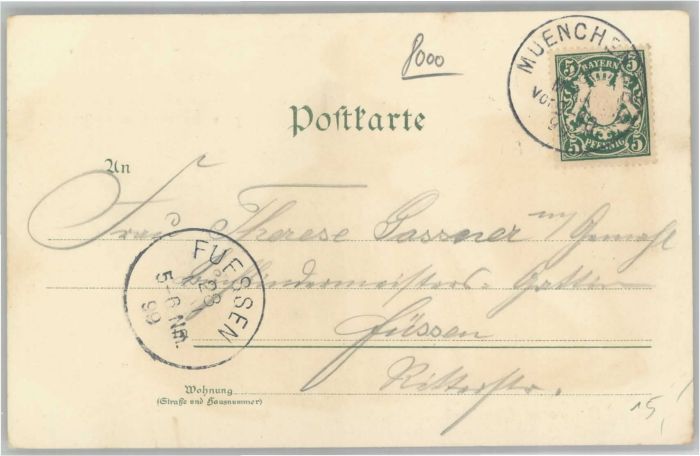 8000
MUENCHEN
BAYERN
5 5
5 PFENNIG 5
Postkarte
An
Frau Therese Gassner m/ Gemahl
Gattin
Füssen
Ritterstr.
FUESSEN
28
5-6 Nm.
99
Wohnung
(Straße und Hausnummer)
15,